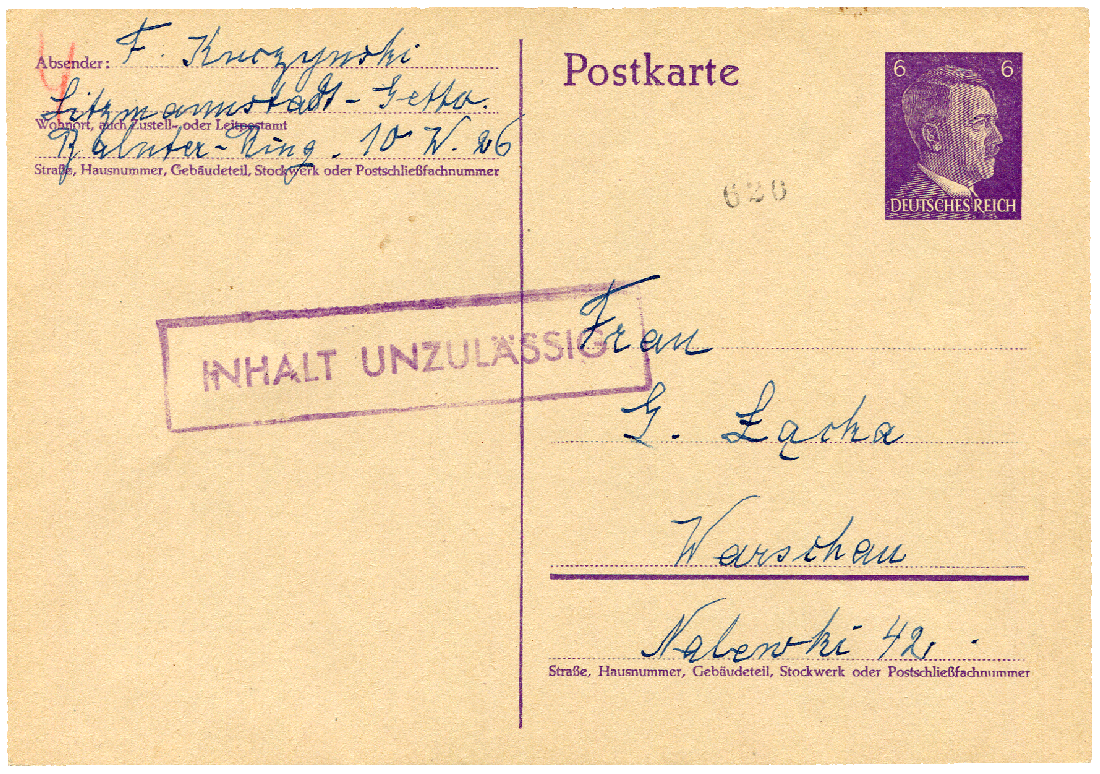 Absender: F. Kuczynski
Litzmannstadt-Getto.
Wohnort, auch Zustell- oder Leitpostamt
Ring. 10 W. 26
Straße, Hausnummer, Gebäudeteil, Stockwerk oder Postschließfachnummer
Postkarte
6 6
DEUTSCHES REICH
620
INHALT UNZULÄSSIG
Frau
G. Łącka
Warschau
Nalewki 42.
Straße, Hausnummer, Gebäudeteil, Stockwerk oder Postschließfachnummer